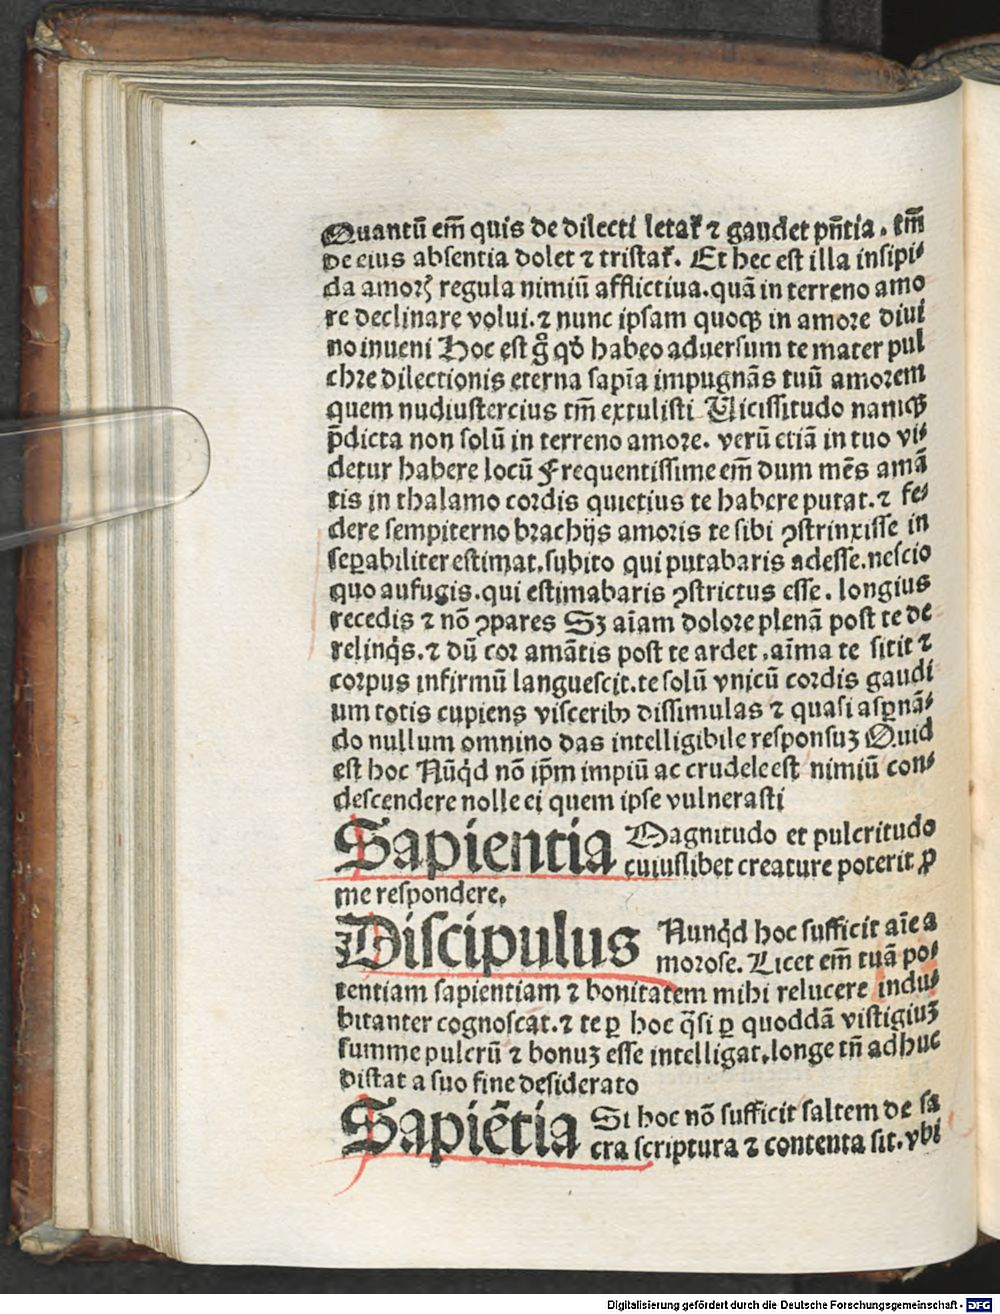 Quantū em̄ quis de dilecti letaƭ ⁊ gaudet pn̄tia. tm̄
de eius absentia dolet ⁊ tristaƭ. Et hec est illa insipi⸗
da amoꝝ regula nimiū afflictiua. quā in terreno amo
re declinare volui. ⁊ nunc ipsam quoqꝫ in amore diui
no inueni Hoc est gͦ qđ habeo aduersum te mater pul
chre dilectionis eterna sapīa impugnās tuū amorem
quem nudiustercius tm̄ extulisti Uicissitudo namqꝫ
p̄dicta non solū in terreno amore. verū etiā in tuo vi⸗
detur habere locū Frequentissime em̄ dum mēs amā
tis in thalamo cordis quietius te habere putat. ⁊ fe⸗
dere sempiterno brachijs amoris te sibi ꝯstrinxisse in
seꝑabiliter estimat. subito qui putabaris adesse. nescio
quo aufugis. qui estimabaris ꝯstrictus esse. longius
recedis ⁊ nō ꝯpares Sꝫ aīam dolore plenā post te de
relinq̇s. ⁊ dū cor amātis post te ardet. aīma te sitit ⁊
corpus infirmū languescit. te solū vnicū cordis gaudi
um totis cupiens visceribꝫ dissimulas ⁊ quasi asꝑnā⸗
do nullum omnino das intelligibile responsuꝫ Quid
est hoc Nūq̇d nō ip̄m impiū ac crudele est nimiū con⸗
descendere nolle ei quem ipse vulnerasti
Sapientia Magnitudo et pulcritudo
cuiuslibet creature poterit ꝑ
me respondere.
Discipulus Nunq̇d hoc sufficit aīe a
morose. Licet em̄ tuā po⸗
tentiam sapientiam ⁊ bonitatem mihi relucere indu⸗
bitanter cognoscat. ⁊ te ꝑ hoc q̄si ꝑ quoddā vistigiuꝫ
summe pulcrū ⁊ bonuꝫ esse intelligat. longe tn̄ adhuc
distat a suo fine desiderato
Sapiētia Si hoc nō sufficit saltem de sa
cra scriptura ⁊ contenta sit. vbi
Digitalisierung gefördert durch die Deutsche Forschungsgemeinschaft - DFG